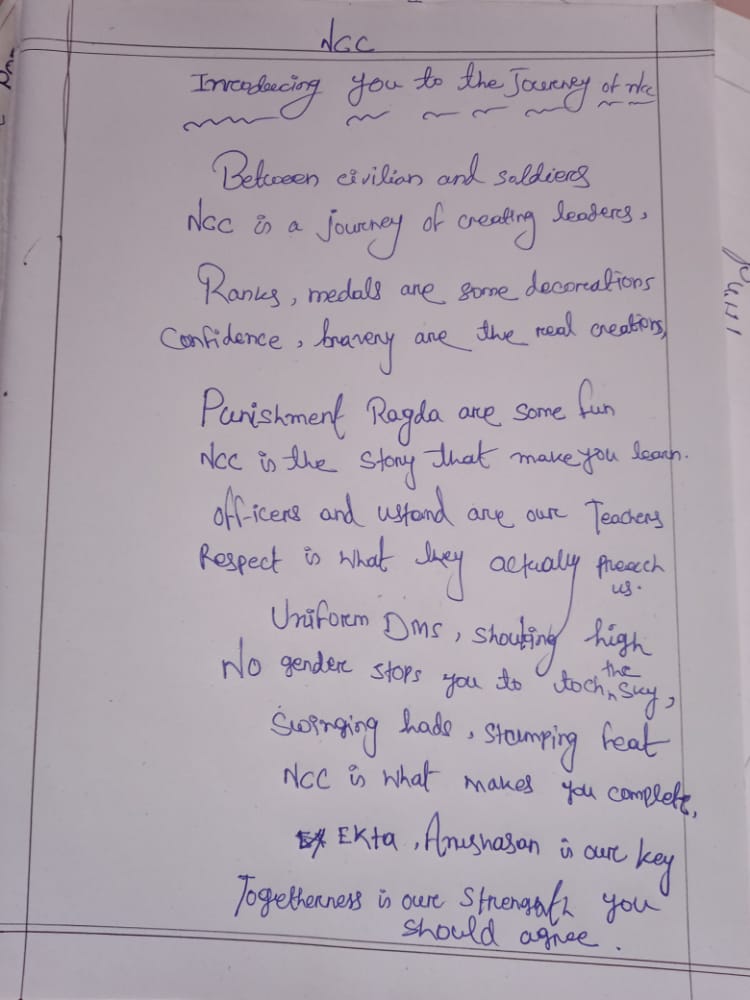 NCC
Introducing you to the Journey of ncc
Between civilian and soldiers
NCC is a journey of creating leaders,
Ranks, medals are some decorations
Confidence, bravery are the real creations,
Punishment Ragda are some fun
NCC is the story that make you learn.
Officers and ustand are our Teachers
Respect is what they actually preach
us.
Uniform DMS, shouting high
No gender stops you to toch the sky,
Swinging hads, stumping feat
NCC is what makes you complete,
Ekta, Anushasan is our key
Togetherness is our strength you
should agree.